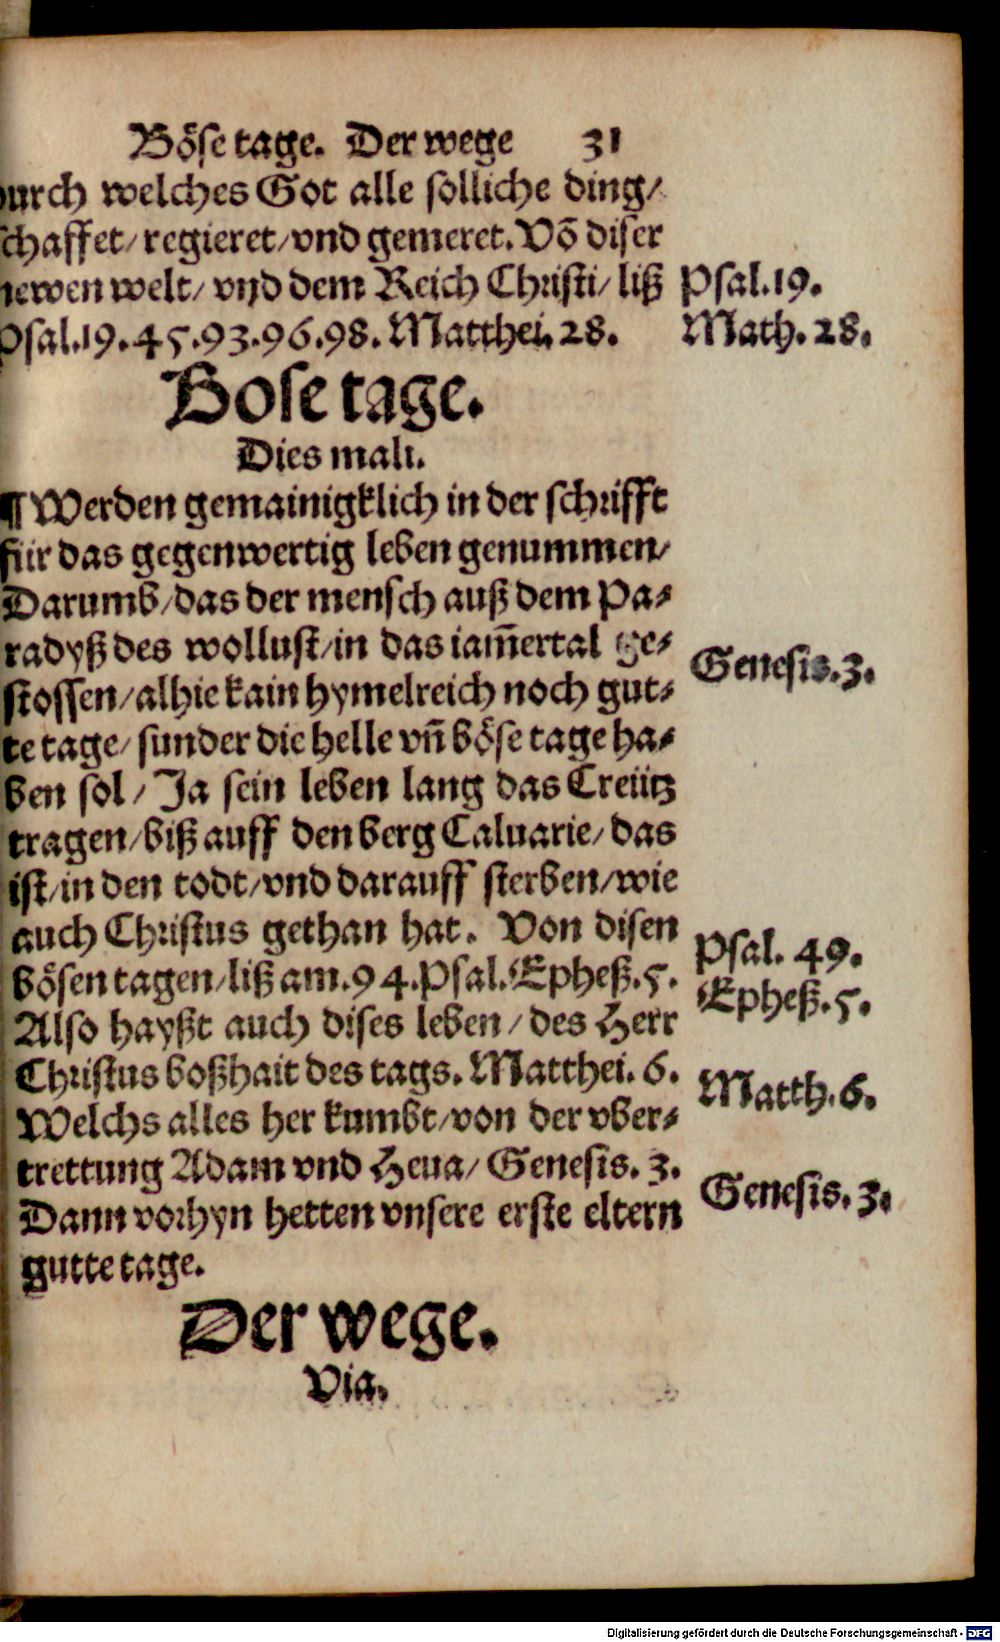 Böse tage. Der wege 31
durch welches Got alle solliche ding/
schaffet/ regieret/ vnd gemeret. Võ diser
newen welt/ vnd dem Reich Christi/ liß Psal.19.
Psal.19.45.93.96.98. Matthei. 28. Math. 28.
Bose tage.
Dies mali.
¶ Werden gemainigklich in der schrifft
für das gegenwertig leben genummen/
Darumb/ das der mensch auß dem Pa⸗
radyß des wollust/ in das iam̄ertal ge⸗ Genesis.3.
stossen/ alhie kain hymelreich noch gut⸗
te tage/ sunder die helle vñ böse tage ha⸗
ben sol/ Ja sein leben lang das Creütz
tragen/ biß auff den berg Caluarie/ das
ist/ in den todt/ vnd darauff sterben/ wie
auch Christus gethan hat. Von disen Psal. 49.
bösen tagen/ liß am.94.Psal.Epheß.5. Epheß.5.
Also hayßt auch dises leben/ des Herr
Christus boßhait des tags. Matthei. 6. Matth.6.
Welchs alles her kumbt/ von der vber⸗
trettung Adam vnd Heua/ Genesis. 3. Genesis.3.
Dann vorhyn hetten vnsere erste eltern
gutte tage.
Der wege.
Via.
Digitalisierung gefördert durch die Deutsche Forschungsgemeinschaft - DFG